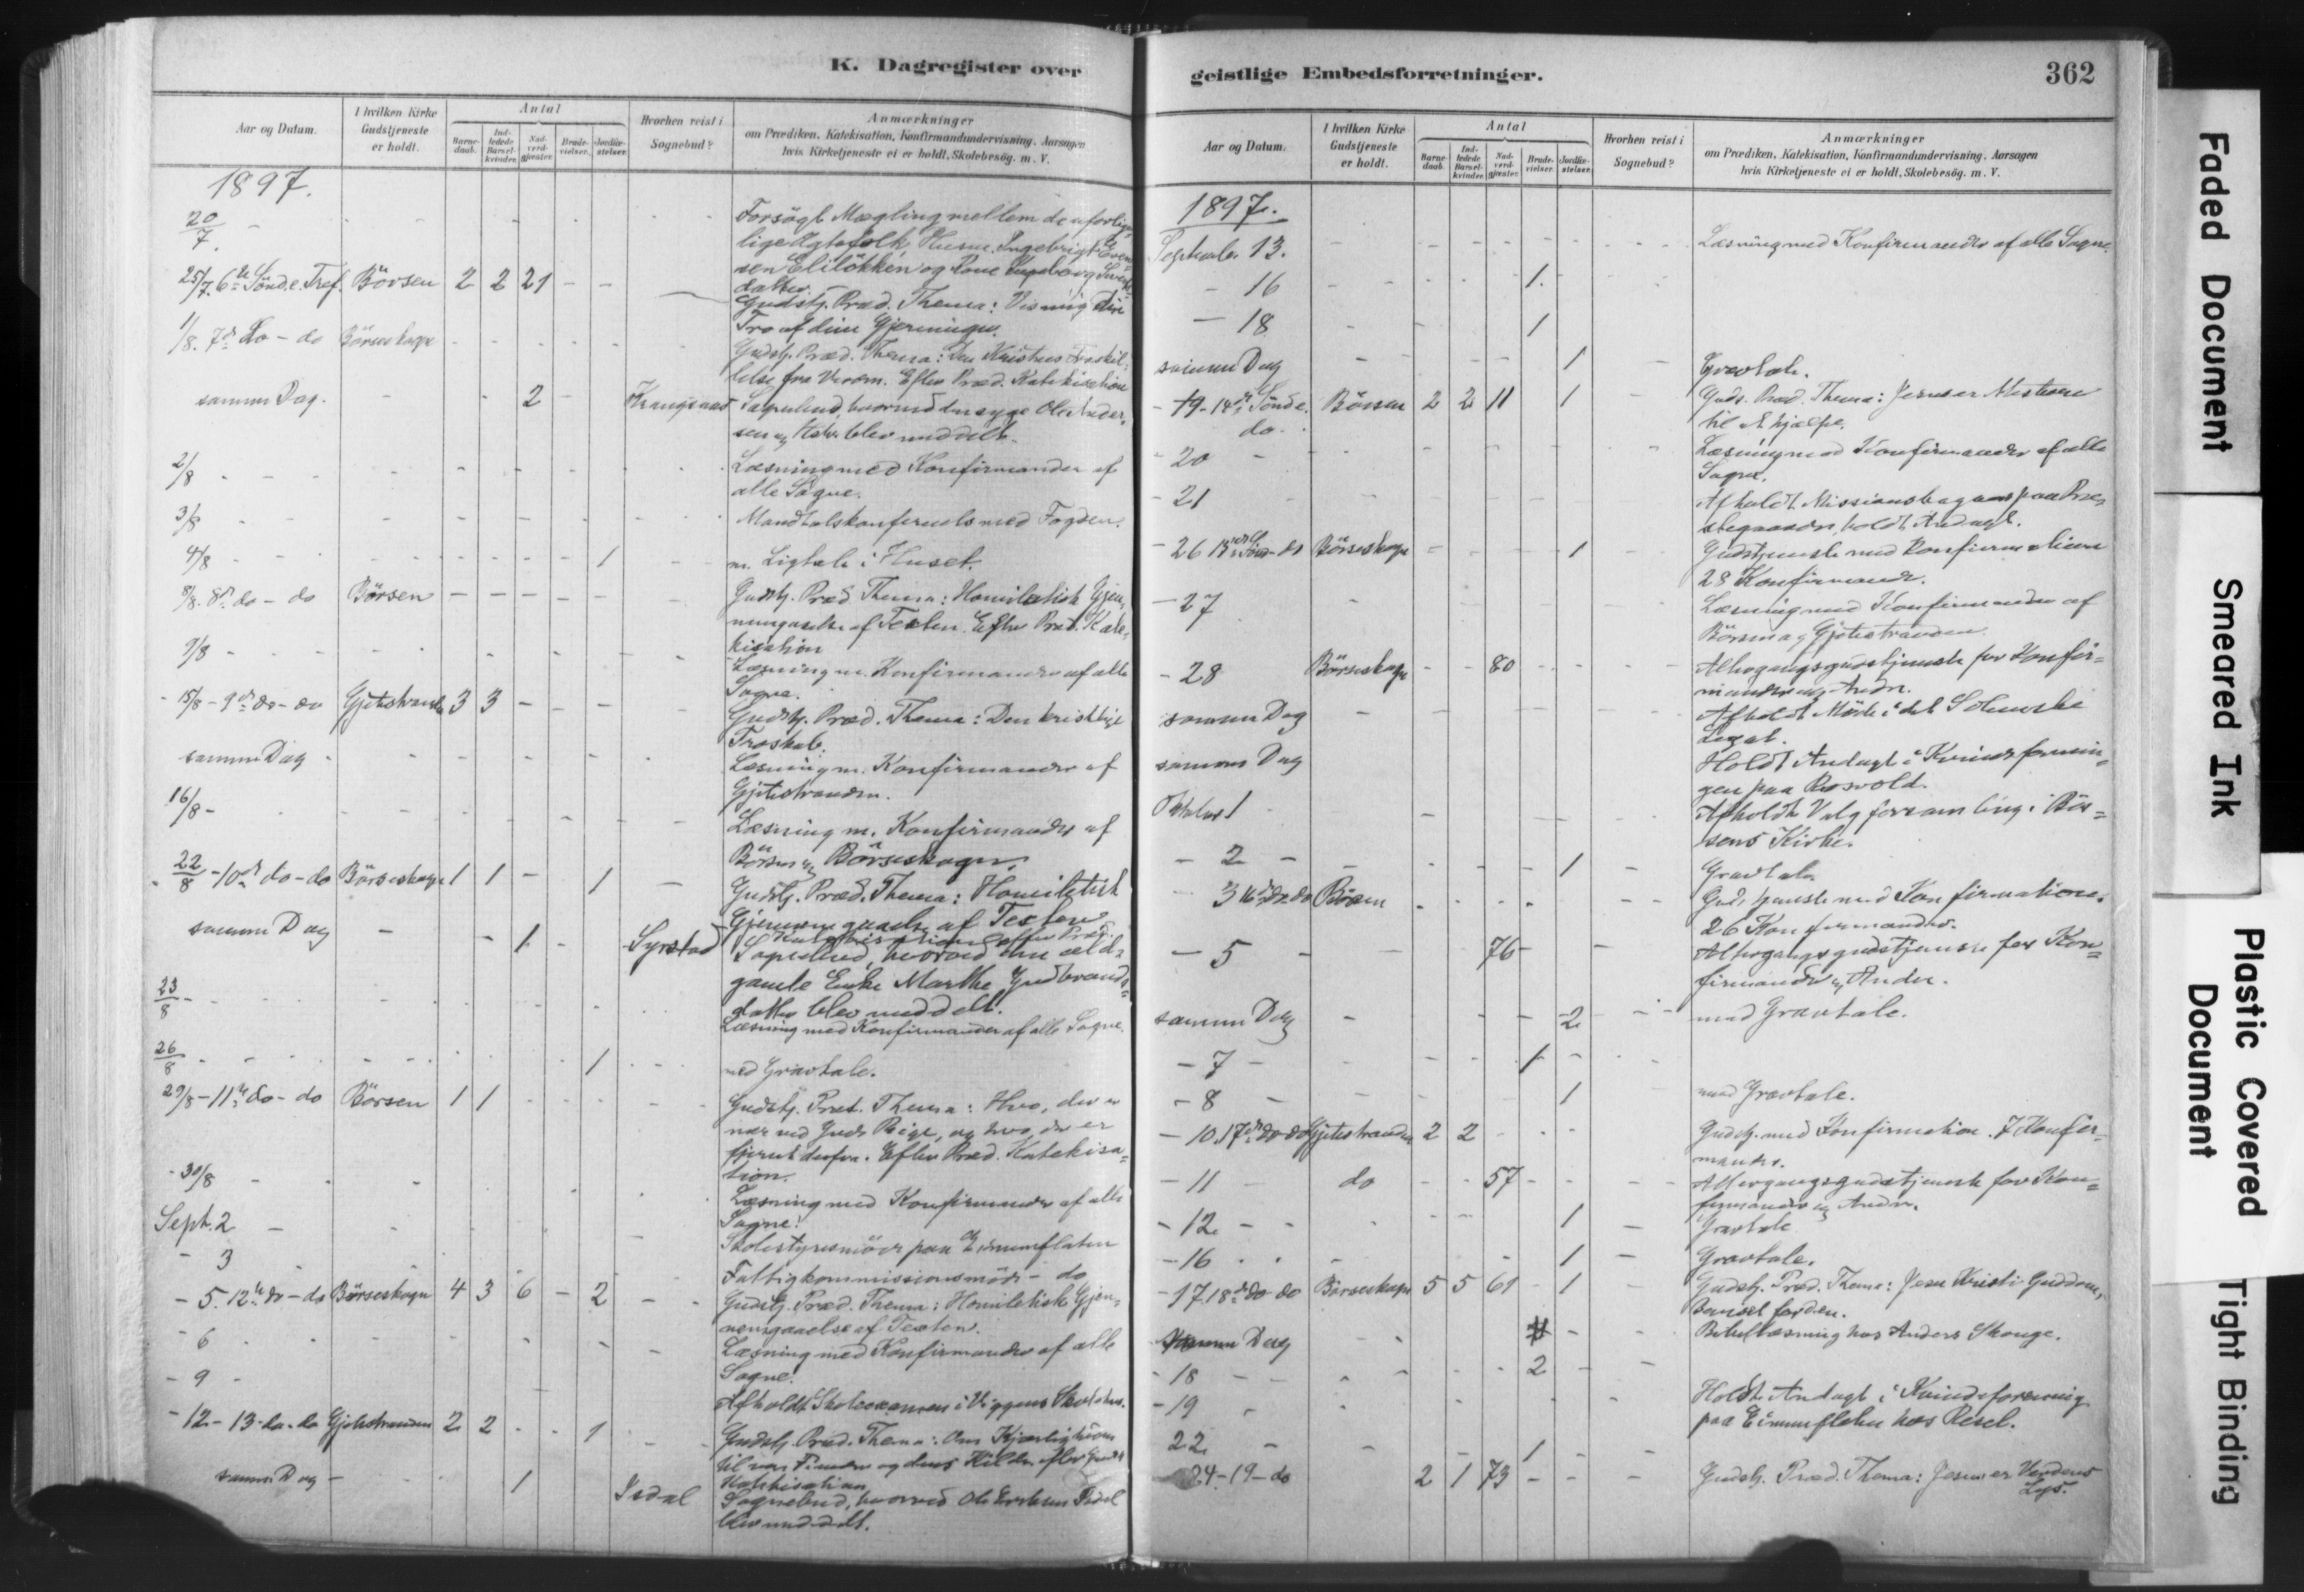 K. Dagregister over
Aar og Datum.
I hvilken Kirke Gudstjeneste er holdt.
Antal
Barnedaab.
Indledede Barselkvinder.
Nadverdgjester.
Brudevielser.
Jordfæstelser.
Hvorhen reist i Sognebud?
Anmærkninger
om Prædiken, Katekisation, Konfirmandundervisning. Aarsagen
hvis Kirketjeneste ei er holdt, Skolebesög. m. V.
1897.
20/7. - Forsögt Mægling mellem de uforlige-
lige Ægtefolk Husm. Ingebrigt Even-
sen Eliløkken og Kone Ingeborg
datter.
25/7. 6te Sönd. e. Tref. Börsen 2 2 21 - - Gudstj. Præd. Thema: Vis mig din
Tro af dine Gjerninger.
1/8. 7de Do - do Börseskogn Gudstj. Præd. Thema: Kristus
fra Verden. Efter Præd. Katekisation
samme Dag. 2 Sognebud, hvorved den syge Ole Ander-
sen og blev meddelt.
2/8 Læsning med Konfirmander af
alle Sogne.
3/8 Mandtalskonferents med Fogden.
4/8 1 m. Ligtale i Huset.
8/8. 8de do - do Börsen Gudstj. Præd. Thema: Homiletisk Gjen-
nemgaaelse af Texten. Efter Præd. Kate-
kisation
9/8 Læsning m. Konfirmander af alle
Sogne.
15/8 - 9de do - do Gjetestranden 3 3 Gudstj. Præd. Thema: Den kristelige
Troskab.
samme Dag Læsning m. Konfirmander af
Gjetestranden.
16/8 - Læsning m. Konfirmander af
Börsen og Börseskogn.
22/8 - 10de do - do Börseskogn 1 1 - 1 Gudstj. Præd. Thema: Homiletisk
Gjennemgaaelse af Texten
Katekisation efter Præd.
samme Dag - 1 - Syrstad Sognebud, hvorved den ald-
gamle Enke Marthe Gudbrands-
datter blev meddelt.
23/8 Læsning med Konfirmander af alle Sogne.
26/8 1 med Gravtale.
29/8 - 11te do - do Börsen 1 1 Gudstj. Præd. Thema: Hvo, der er
nær ved Guds Rige, og hvo, der er
fjernt derfra. Efter Præd. Katekisa-
tion.
30/8 Læsning med Konfirmander af alle
Sogne.
Sept. 2 Skolestyremöde paa Eimumflaten
- 3 Fattigkommissionsmöde - do
- 5. 12te do - do Börseskogn 4 3 6 - 2 Gudstj. Præd. Thema: Homiletisk Gjen-
nemgaaelse af Texten.
- 6 Læsning med Konfirmander af alle
Sogne.
- 9 Afholdt Skoleexamen i Viggens Skolehus.
- 12 - 13 - do - do Gjetestranden 2 2 1 Gudstj. Præd. Thema: Om Kjærligheden
til vor og dens Kilde. efter Gudstj.
Katekisation
samme Dag - 1 Isdal Sognebud, hvorved Ole Isdal
blev meddelt.
geistlige Embedsforretninger.
362
Aar og Datum.
I hvilken Kirke Gudstjeneste er holdt.
Antal
Barnedaab.
Indledede Barselkvinder.
Nadverdgjester.
Brudevielser.
Jordfæstelser.
Hvorhen reist i Sognebud?
Anmærkninger
om Prædiken, Katekisation, Konfirmandundervisning. Aarsagen
hvis Kirketjeneste ei er holdt, Skolebesög. m. V.
1897.
September 13. Læsning med Konfirmander af alle Sogne.
- 16 1.
- 18 1
samme Dag 1 Gravtale.
- 19 - 14de Sönd e. do. Börsen 2 2 11 1 Guds. Præd. Thema: Jesus er Mesteren
til at hjælpe.
- 20 Læsning med Konfirmander af alle
Sogne.
- 21 Afholdt Missions paa Præ-
stegaarden, holdt Andagt.
- 26 15de Sönd - do Börseskogn 1 Gudstjeneste med Konfirmation
28 Konfirmander.
- 27 Læsning med Konfirmander af
Börsen og Gjetestranden.
- 28 Börseskogn - - 80 Altergangsgudstjeneste for Konfir-
mander og Andre.
samme Dag Afholdt Möde i det Solemske
Legat.
samme Dag Holdt Andagt i Kvindeforenin-
gen paa Rosvold.
Oktober 1 Afholdt Valgforsamling i Bör-
sens Kirke.
- 2 - 1 Gravtale
3 16de do. do Börsen Gudstjeneste med Konfirmation.
26 Konfirmander.
- 5 76 Altergangsgudstjeneste for Kon-
firmander og Andre.
samme Dag 2 med Gravtale.
- 7 - 1
- 8 1 med Gravtale.
- 10. 17de do do Gjetestranden 2 2 Gudstj. med Konfirmation. 7 Konfir-
mander.
- 11 do 57 Altergangsgudstjeneste for Kon-
firmander og Andre.
- 12 1 Gravtale
- 16 1 Gravtale.
- 17 18de do do Börseskogn 5 5 61 1 Gudstj. Præd. Thema: Jesu Kristi Guddom,
Beviset for den.
Samme Dag Bibellæsning hos Anders Skauge.
- 18 2
- 19 Holdt Andagt i Kvindeforening
paa Eimumflaten hos Resel.
22 1
24 - 19 - do 2 1 73 Gudstj. Præd. Thema: Jesus er Verdens
Lys.
Faded Document
Smeared Ink
Plastic Covered
Document
Tight Binding